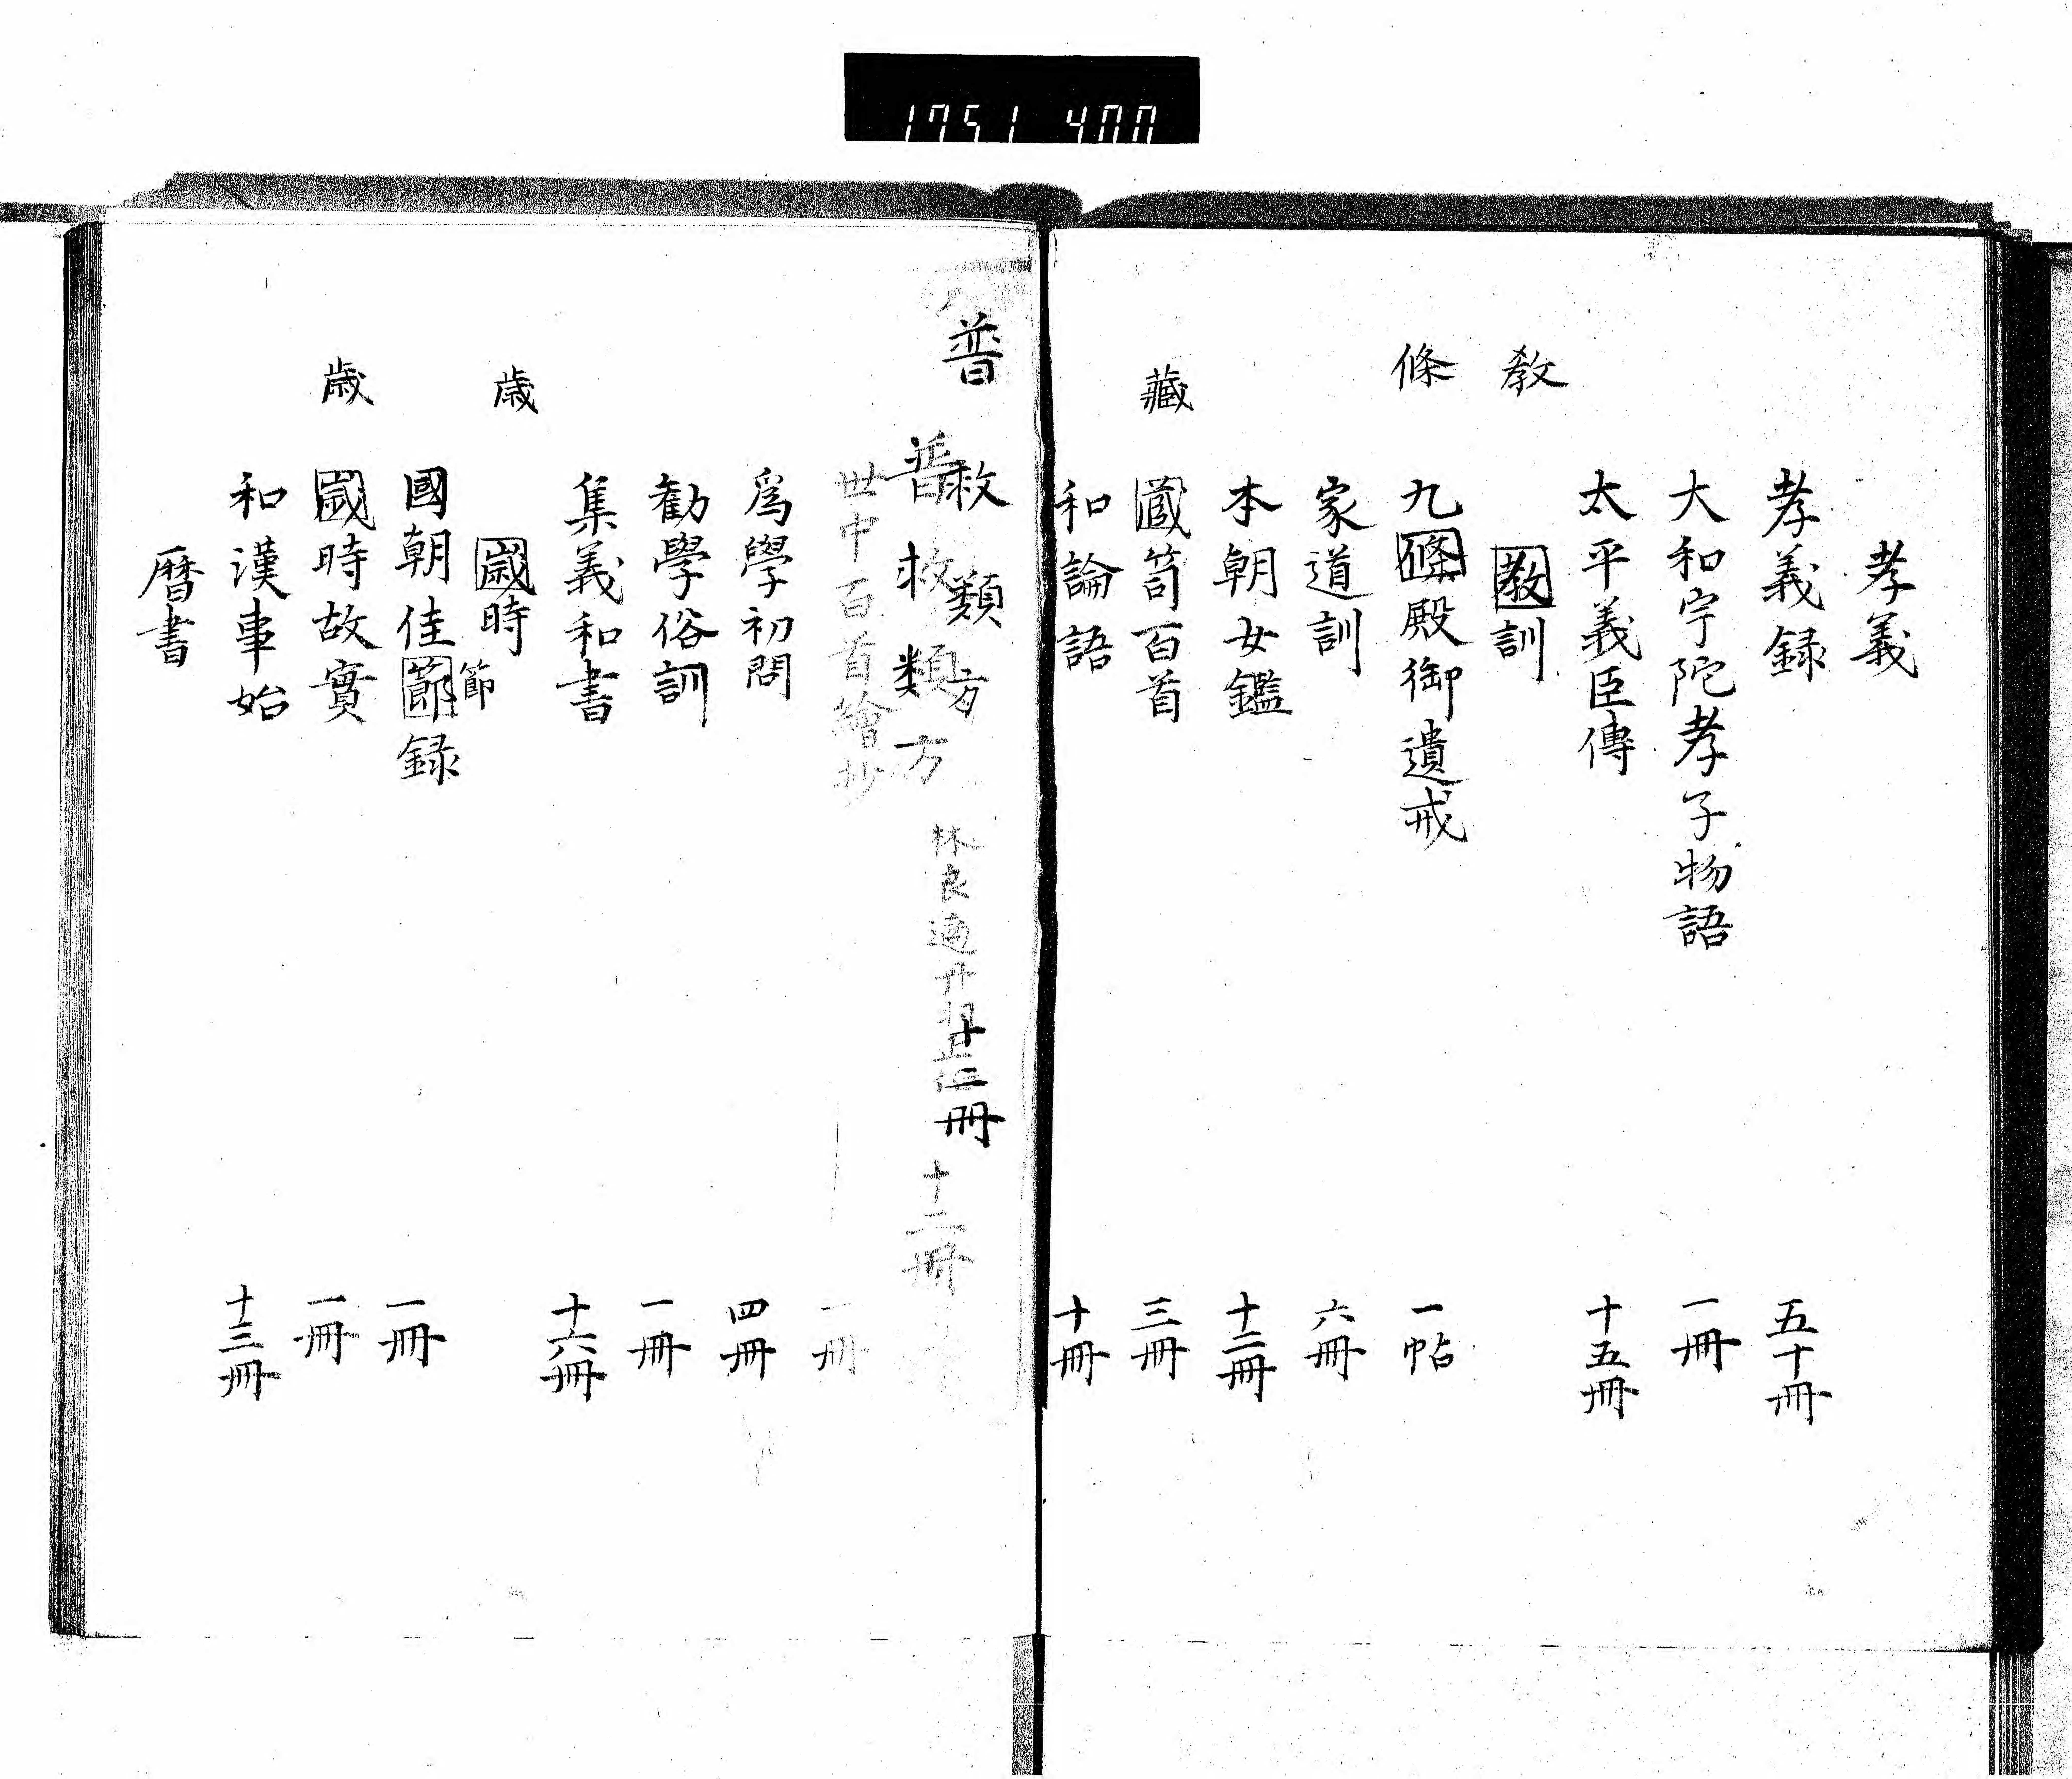 1751 400
孝義
孝義録 五十冊
大和宇陀孝子物語 一冊
太平義臣傳 十五冊
教
教訓
條
九條殿御遺戒 一帖
家道訓 六冊
本朝女鑑 十二冊
藏
藏笥百首 三冊
和論語 十冊
普
救類方 十二冊
普救類方 林良適 丹羽正伯 十二冊
世中百首繪抄 一冊
爲學初問 四冊
勸學俗訓 一冊
集義和書 十六冊
歳
歳時
節
國朝佳節録 一冊
歳
歳時故實 一冊
和漢事始 十三冊
暦書